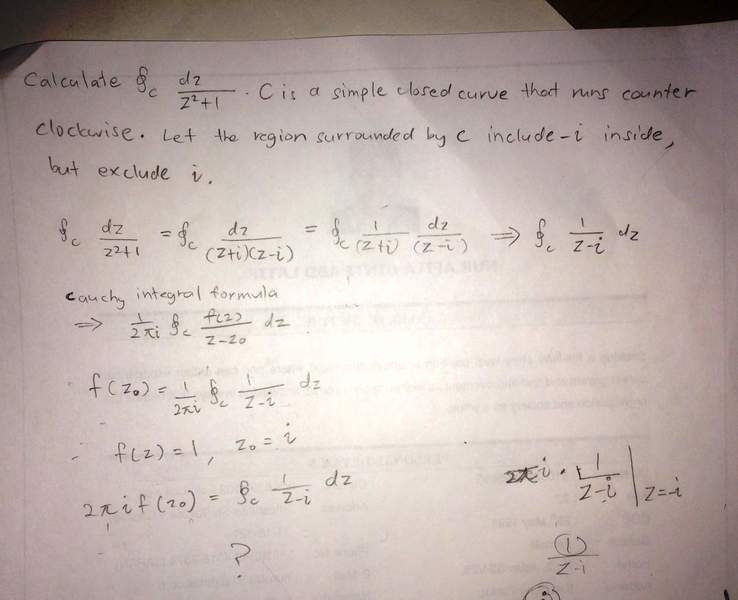 Calculate ∮c dz/z²+1 . C is a simple closed curve that runs counter
clockwise. Let the region surrounded by C include -i inside,
but exclude i.
∮c dz/z²+1 = ∮c dz/(z+i)(z-i) = ∮c 1/(z+i) dz/(z-i) ⇒ ∮c 1/z-i dz
Cauchy integral formula
⇒ 1/2πi ∮c f(z)/z-z₀ dz
f(z₀) = 1/2πi ∮c 1/z-i dz
f(z) = 1, z₀ = i
2πi f(z₀) = ∮c 1/z-i dz
2πi · 1/z-i | z=-i
?
1/z-i